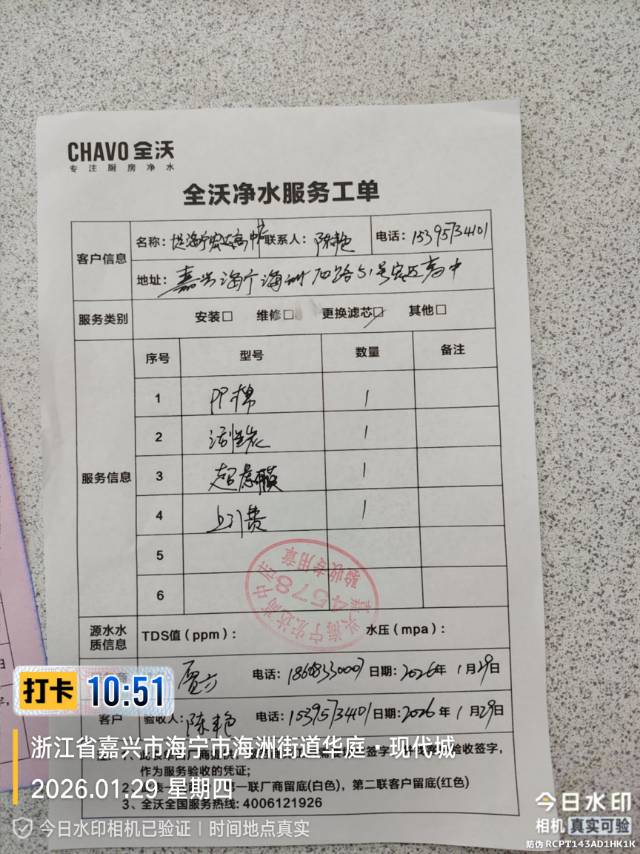 CHAVO 全沃
专注厨房净水
全沃净水服务工单
客户信息
名称: 海宁宏达高中 联系人: 陈艳 电话: 15395734101
地址: 嘉兴海宁海州 路51号宏达高中
服务类别 安装□ 维修□ 更换滤芯☑ 其他□
服务信息
序号 型号 数量 备注
1 PP棉 1
2 活性炭 1
3 超滤膜 1
4 上门费 1
5
6
验收专用章
4578
海宁宏达高中
源水水质信息 TDS值(ppm): 水压(mpa):
电话: 日期: 2026年1月29日
客户 验收人: 陈艳 电话: 15395734101 日期: 2026年1月29日
签字,
验收签字,
作为服务验收的凭证;
一联厂商留底(白色), 第二联客户留底(红色)
3、全沃全国服务热线: 4006121926
打卡 10:51
浙江省嘉兴市海宁市海洲街道华庭·现代城
2026.01.29 星期四
今日水印相机已验证 | 时间地点真实
今日水印
相机 真实可验
防伪 RCPT143AD1HK1K